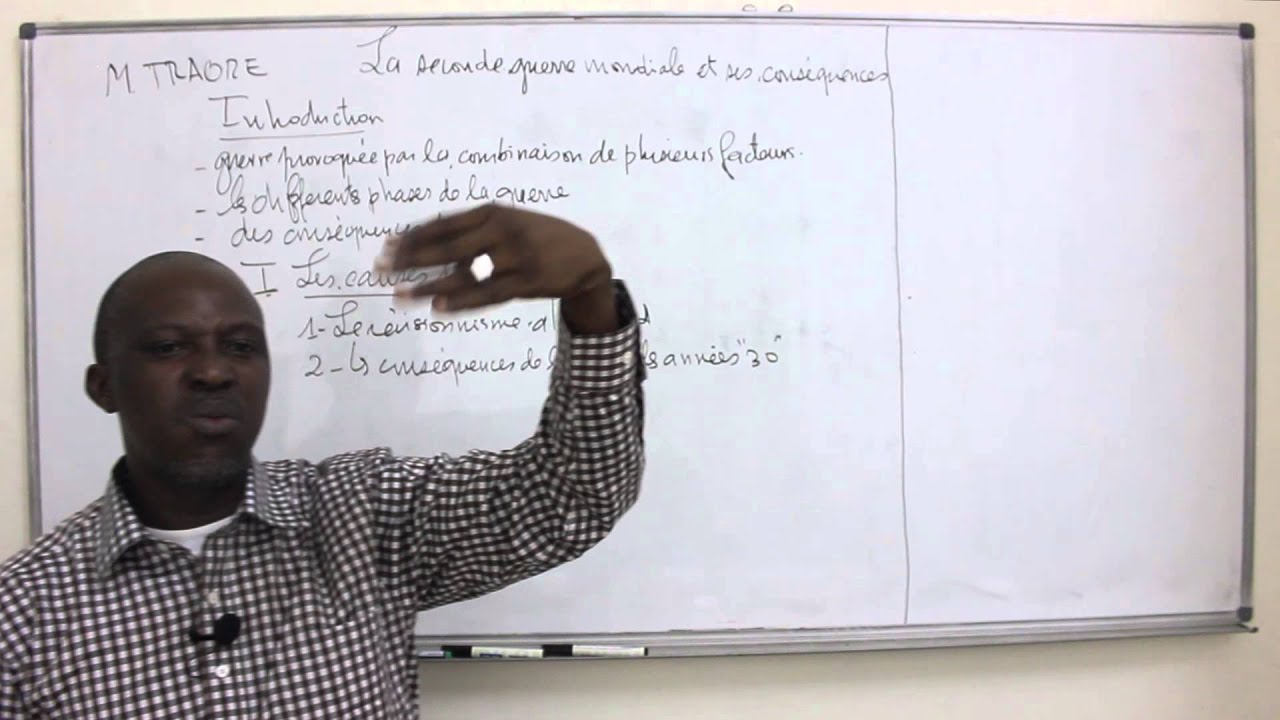 M TRAORE La seconde guerre mondiale et ses conséquences
Introduction
- guerre provoquée par la combinaison de plusieurs facteurs.
- les differents phases de la guerre
- des conséquences
I Les causes
1- Le révisionnisme
2- les conséquences de années "30"